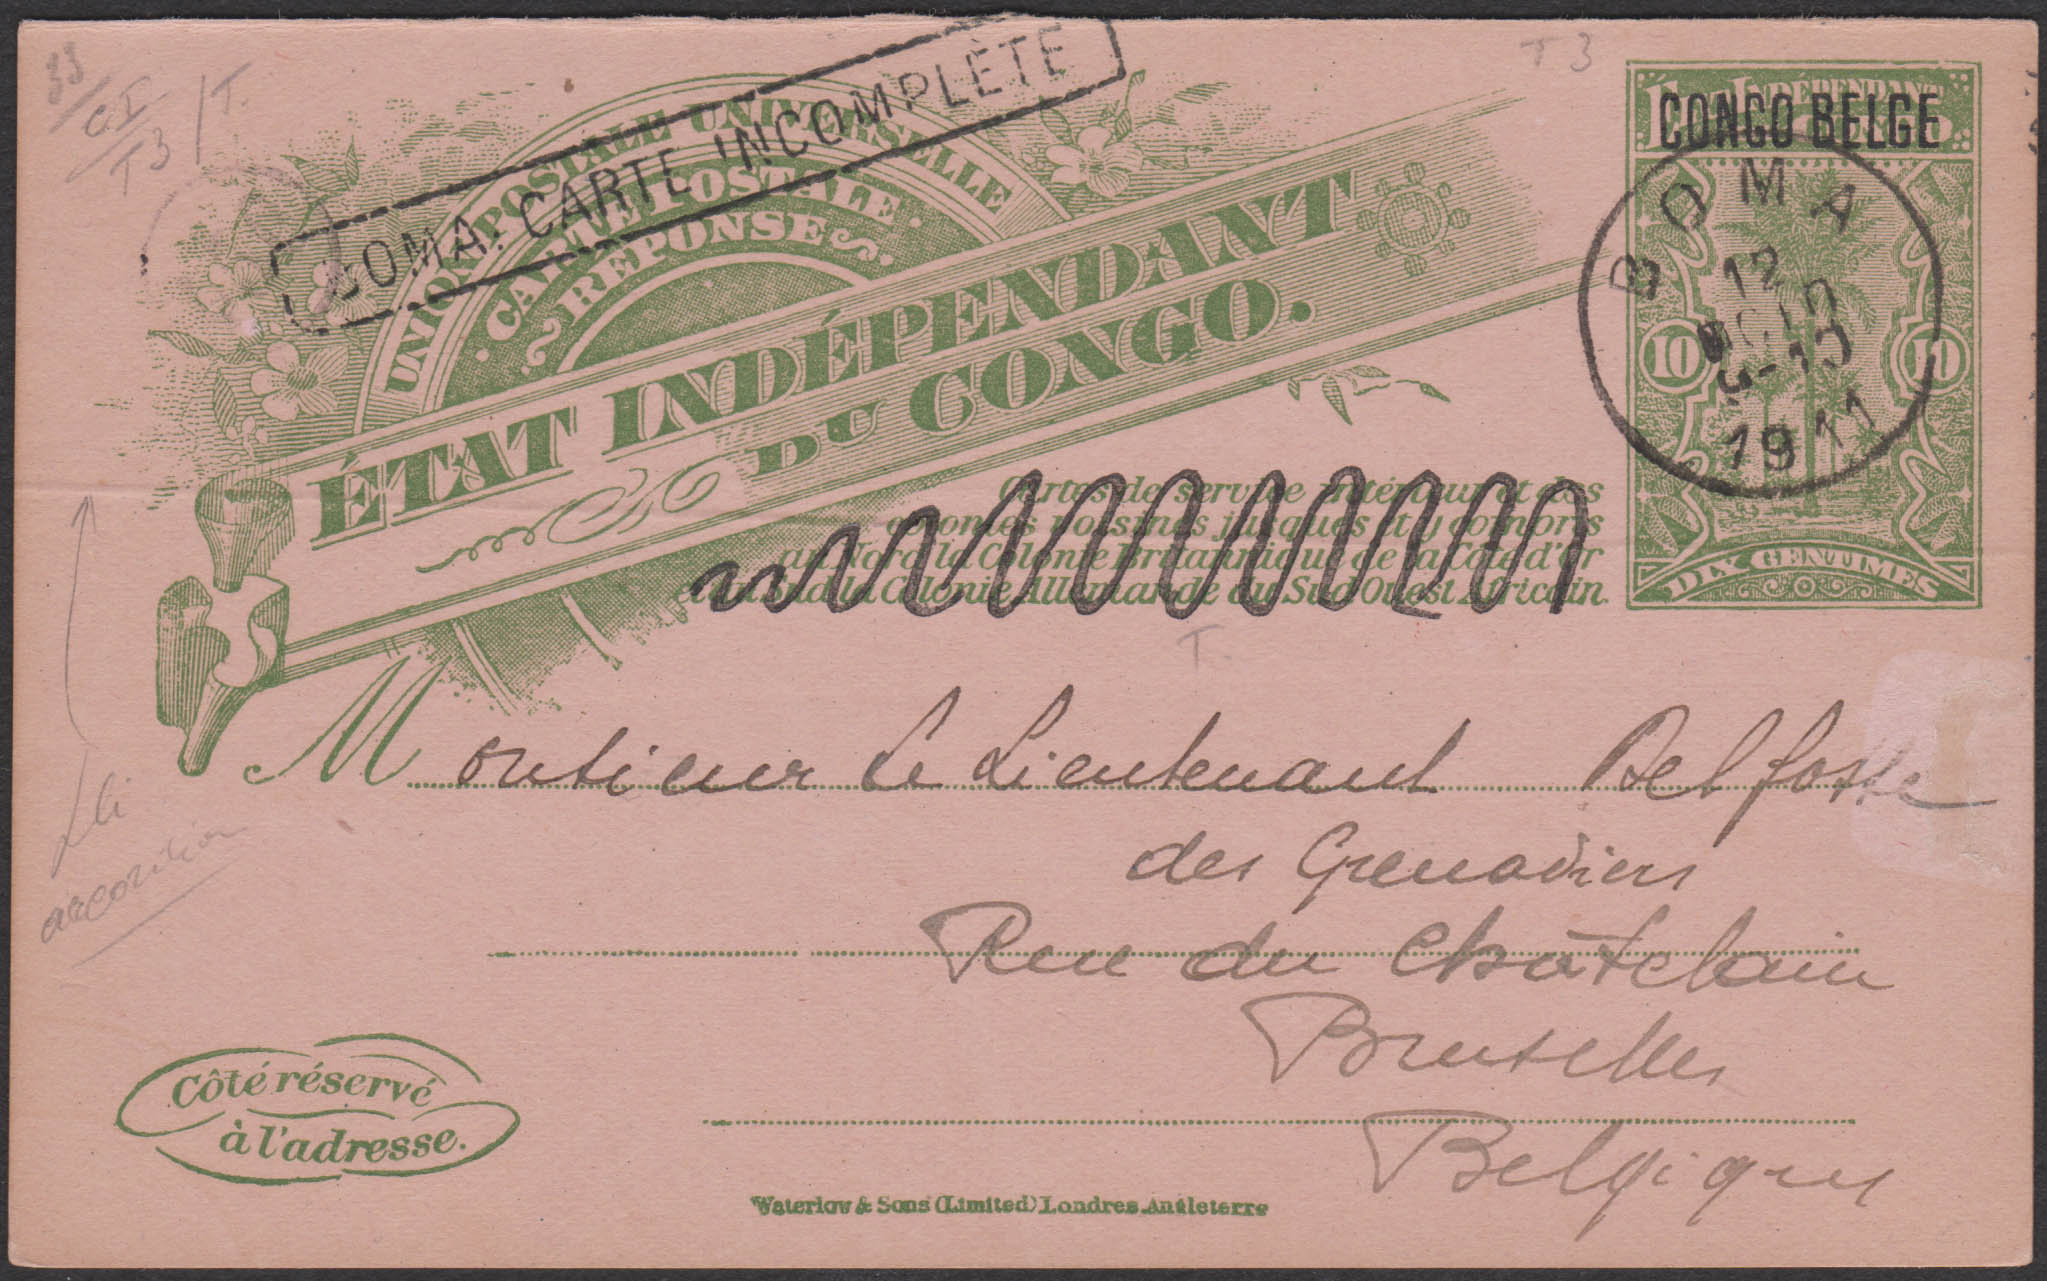 33
C.I /T.
T3
T3
BOMA. CARTE INCOMPLÈTE
UNION POSTALE UNIVERSELLE
· CARTE POSTALE ·
RÉPONSE
ÉTAT INDÉPENDANT
DU CONGO.
CONGO BELGE
BOMA
12
9-10
1911
10 10
DIX CENTIMES
Cartes de service intérieur et des
colonies voisines jusques et y compris
au Nord la Colonie Britannique de la Côte d'or
et au Sud la Colonie Allemande du Sud Ouest Africain.
T.
Monsieur le Lieutenant Delfosse
des Grenadiers
Rue du Châtelain
Bruxelles
Belgique
Côté réservé
à l'adresse.
Waterlow & Sons (Limited) Londres. Angleterre